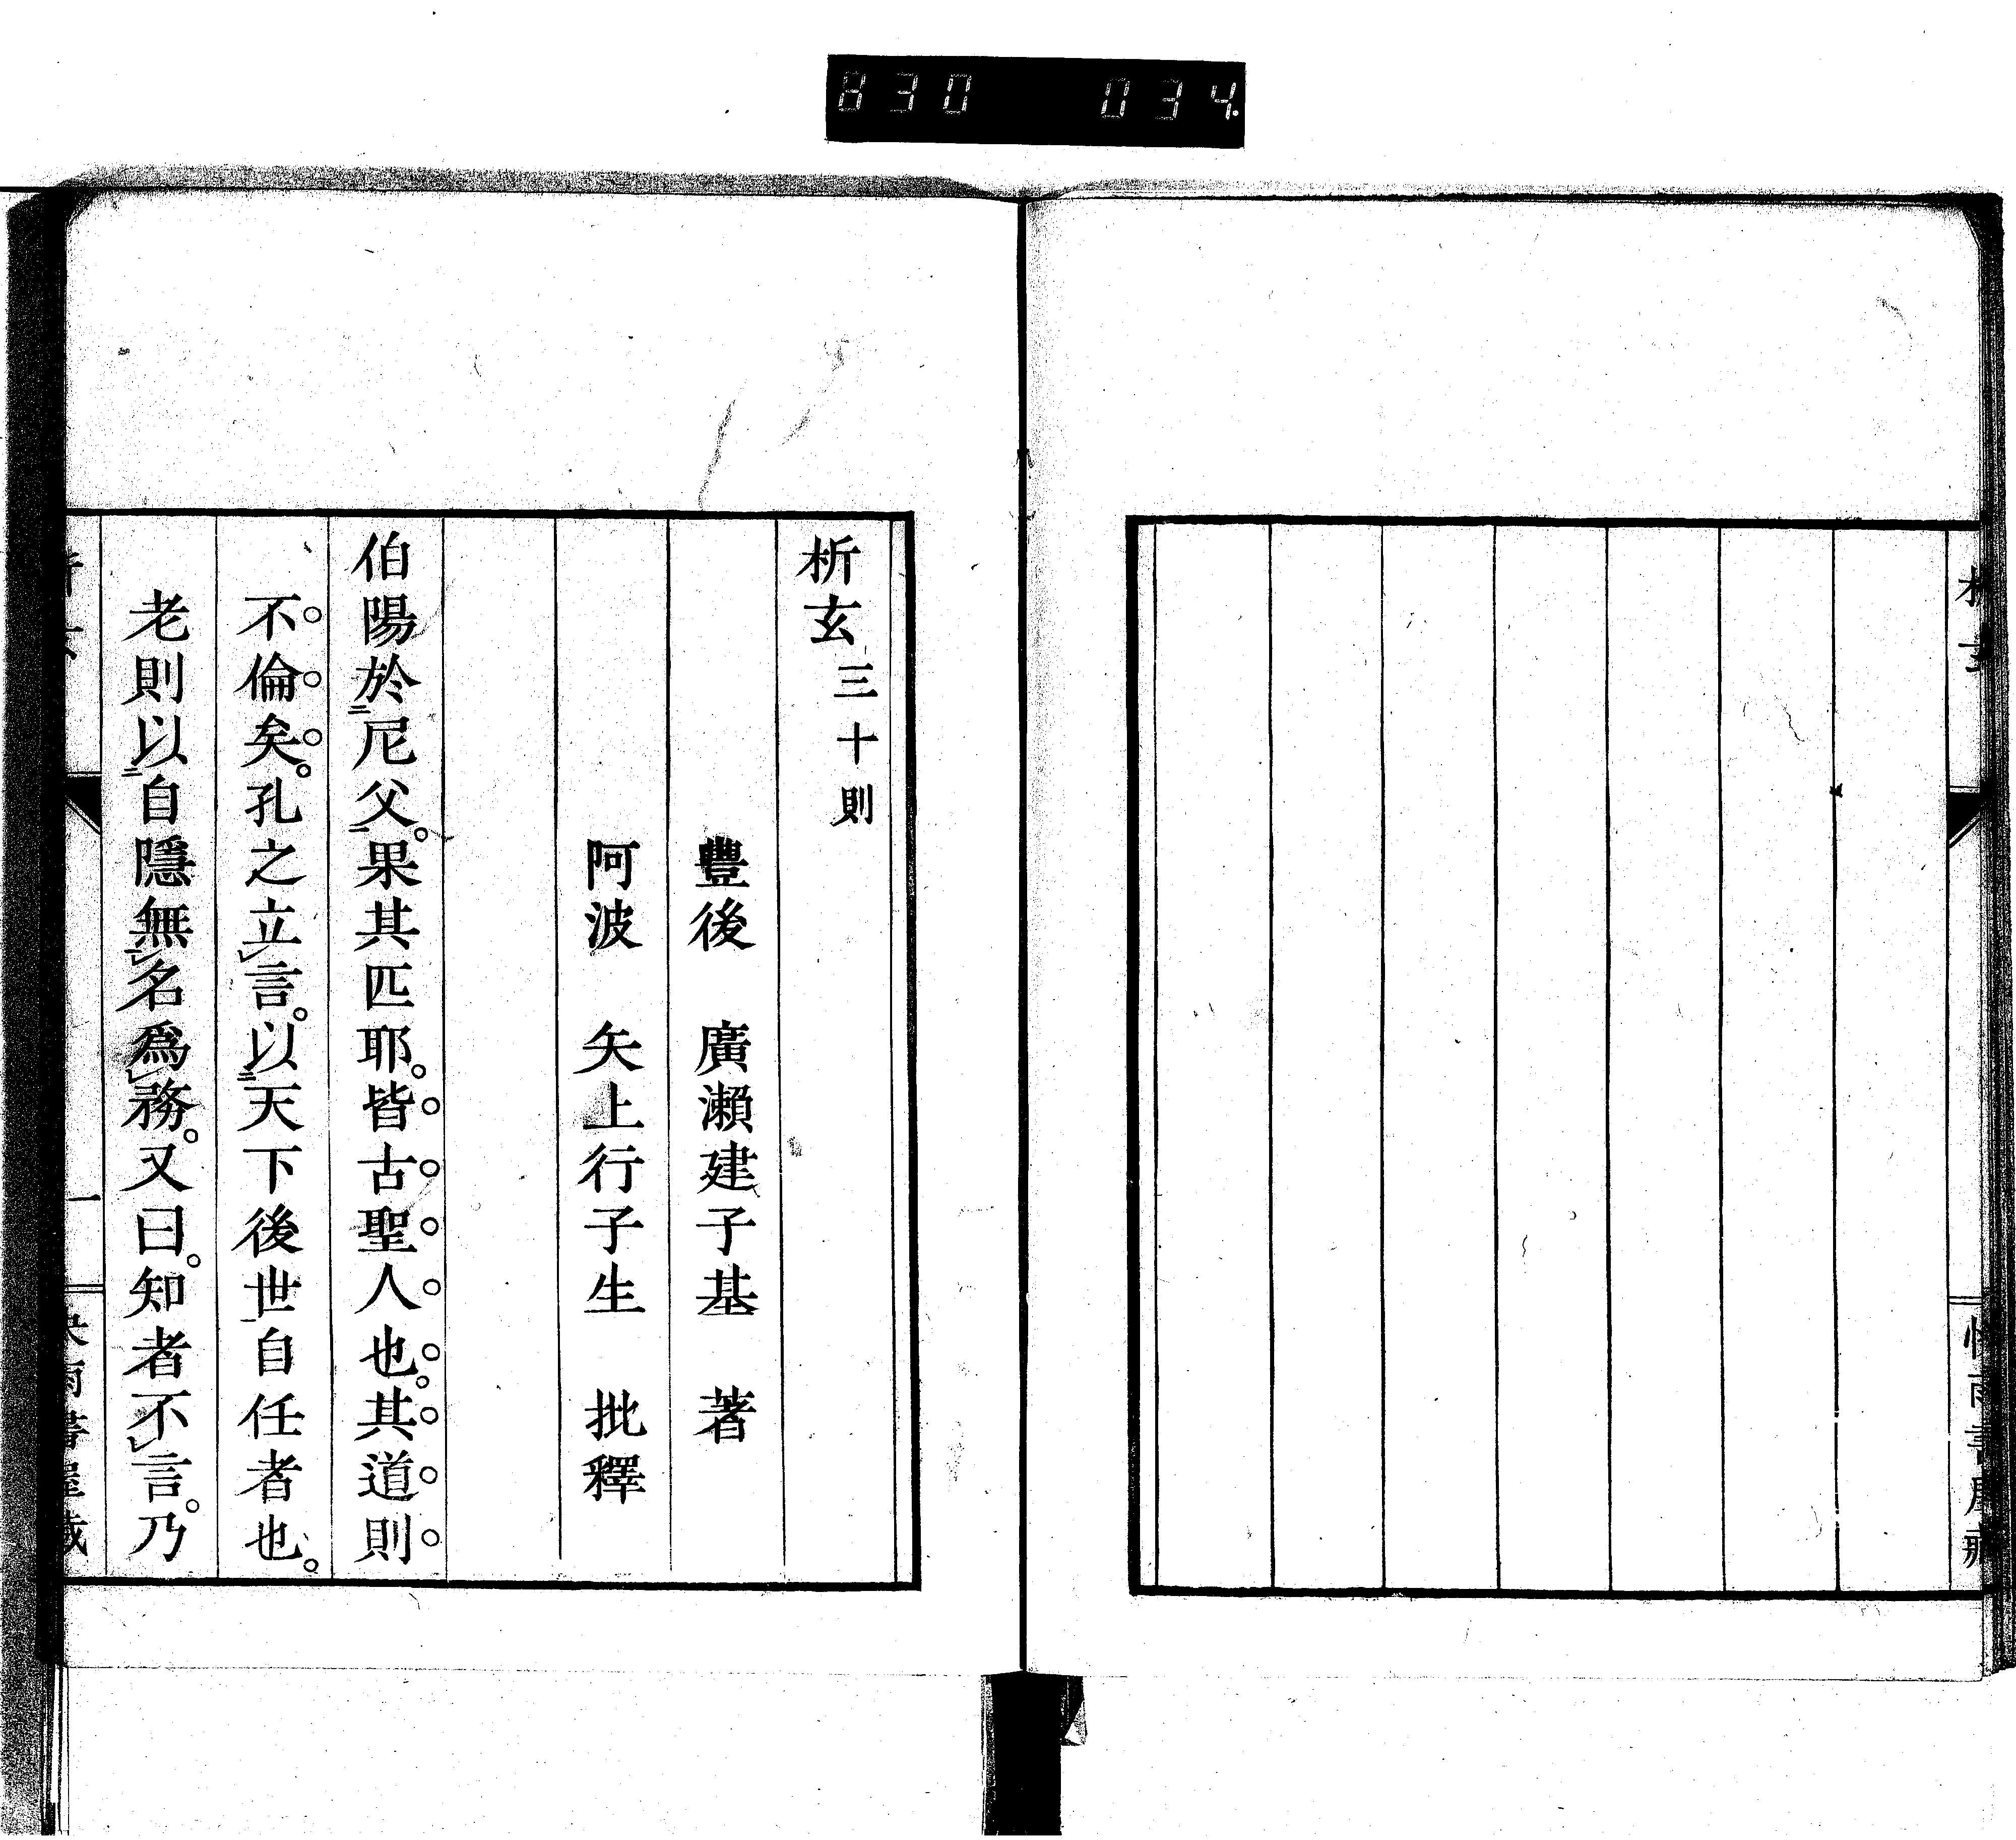 830 034
析玄
析玄三十則
豐後 廣瀨建子基 著
阿波 矢上行子生 批釋
伯陽於二尼父一。果其匹耶。皆古聖人也。其道則
不倫矣。孔之立レ言。以二天下後世一自任者也。
老則以二自隱無レ名爲一レ務。又曰。知者不レ言。乃
一